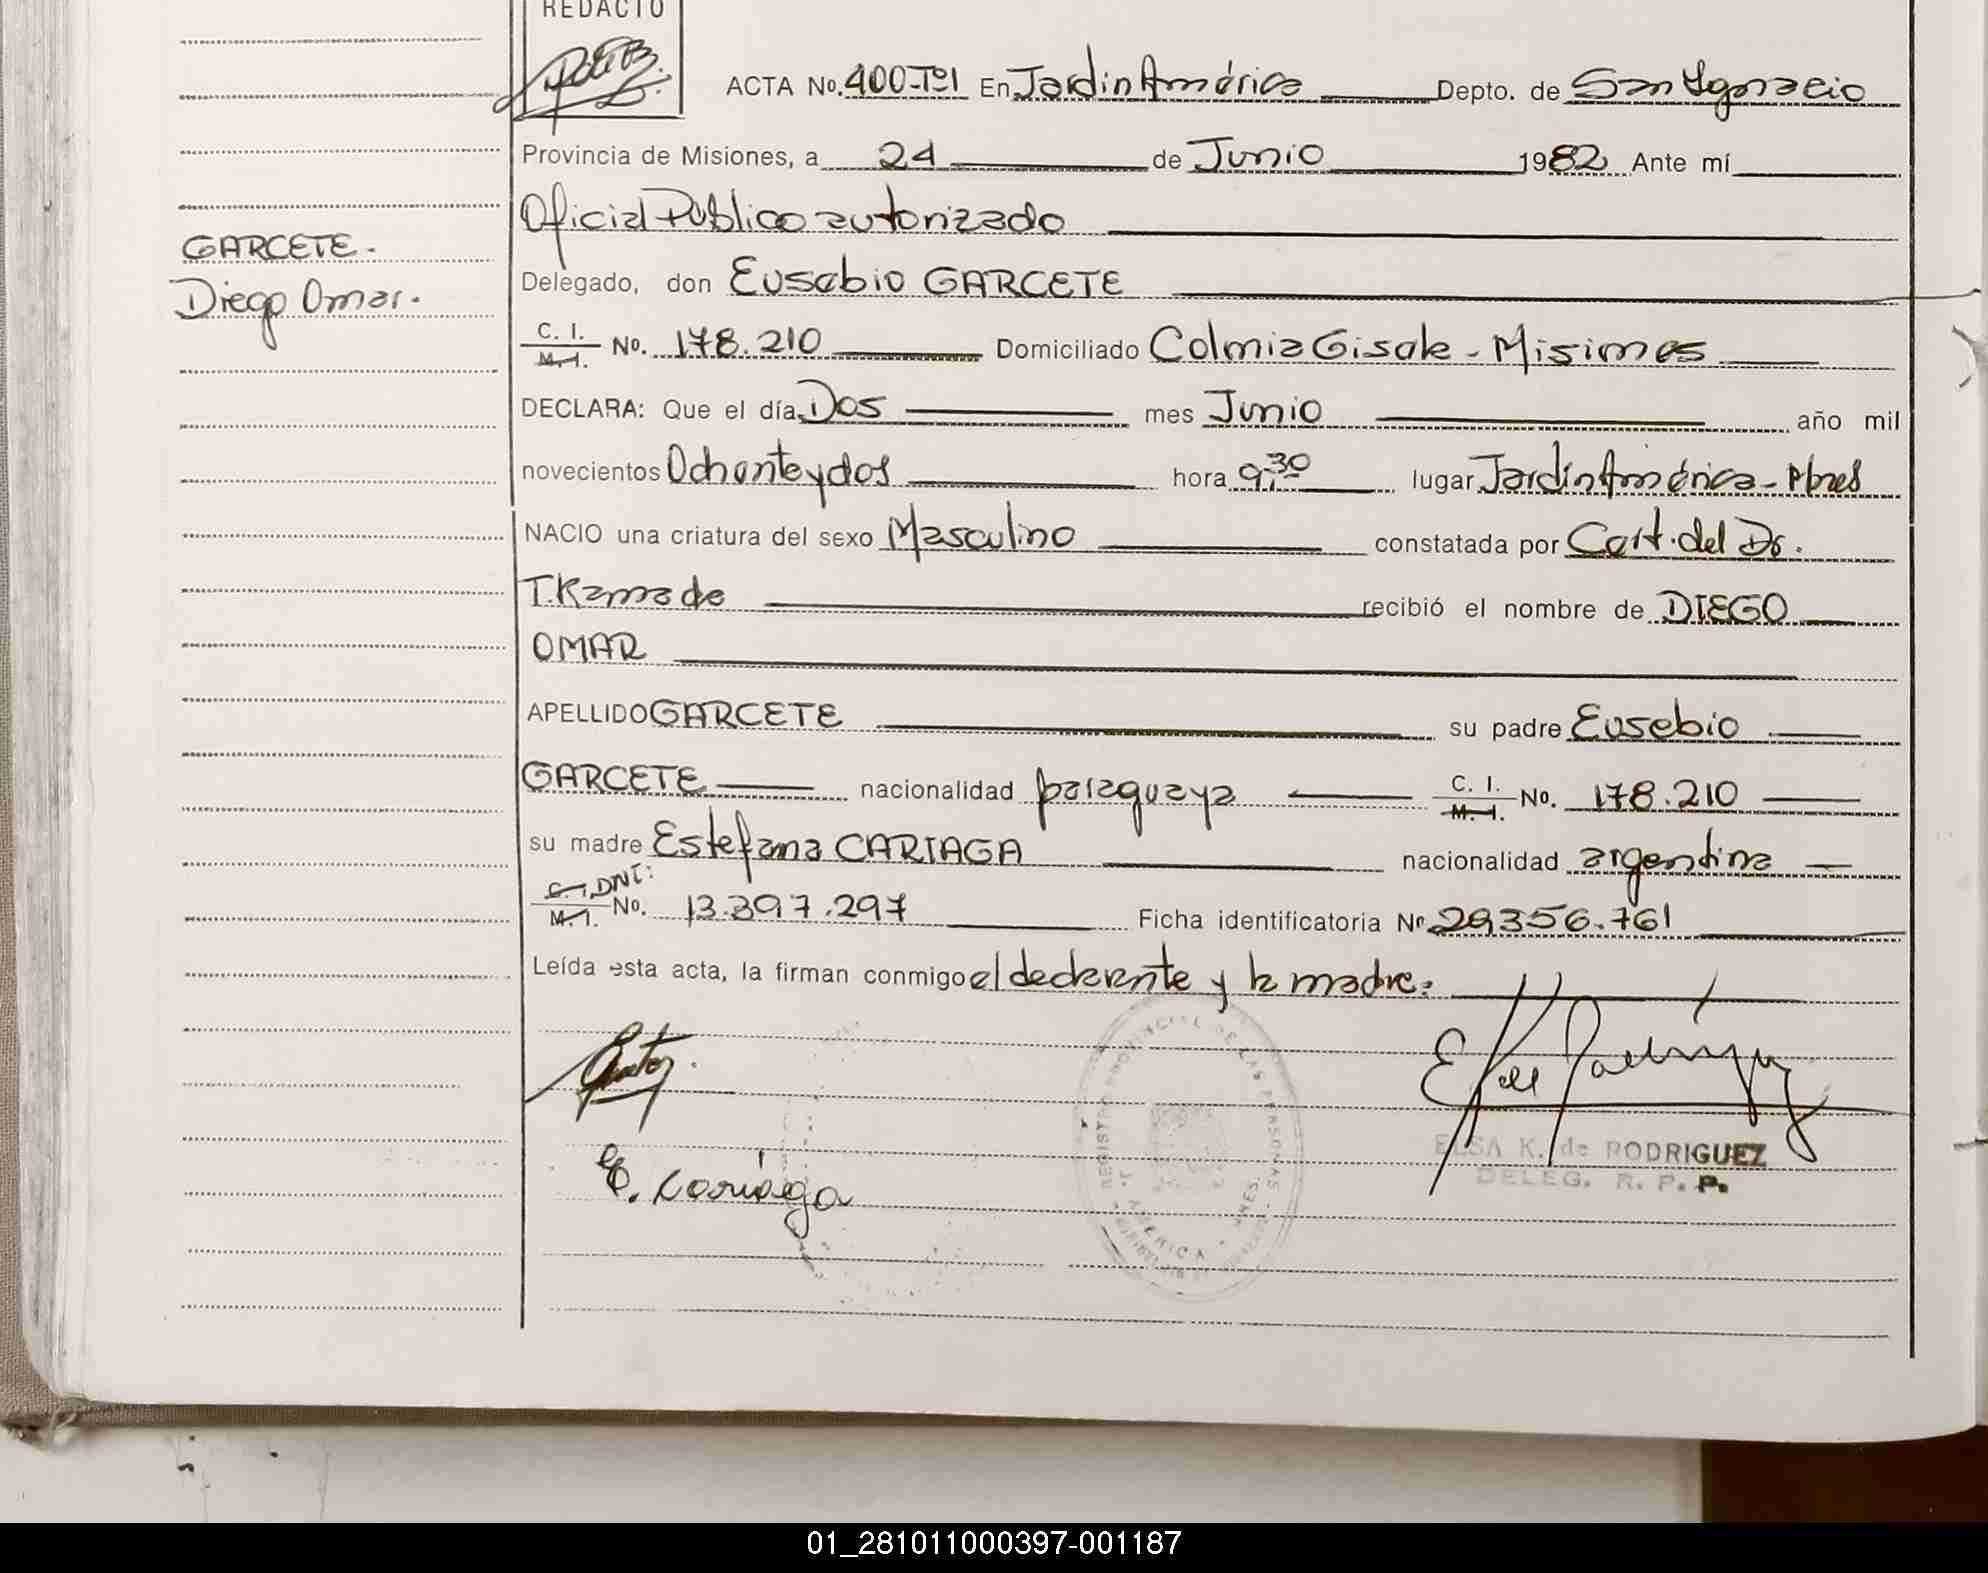 REDACTO
ACTA No. 400-Tº1 En Jardin América Depto. de San Ignacio
Provincia de Misiones, a 24 de Junio 1982 Ante mí
Oficial Público autorizado
GARCETE.
Diego Omar.
Delegado, don Eusebio GARCETE
C. I. M. I. No. 178.210 Domiciliado Colonia Gisela - Misiones
DECLARA: Que el día Dos mes Junio año mil
novecientos Ochenta y dos hora 9,30 lugar Jardín América - Mnes
NACIO una criatura del sexo Masculino constatada por Cert. del Dr.
T. Kamada recibió el nombre de DIEGO
OMAR
APELLIDO GARCETE su padre Eusebio
GARCETE nacionalidad paraguaya C. I. M. I. No. 178.210
su madre Estefana CARIAGA nacionalidad argentina
C. I. DNI: M. I. No. 13.397.297 Ficha identificatoria Nº 29.356.761
Leída esta acta, la firman conmigo el declarante y la madre.
E. Cariaga
ELSA K. de RODRIGUEZ
DELEG. R. P. P.
REGISTRO PROVINCIAL DE LAS PERSONAS
AMERICA
01_281011000397-001187